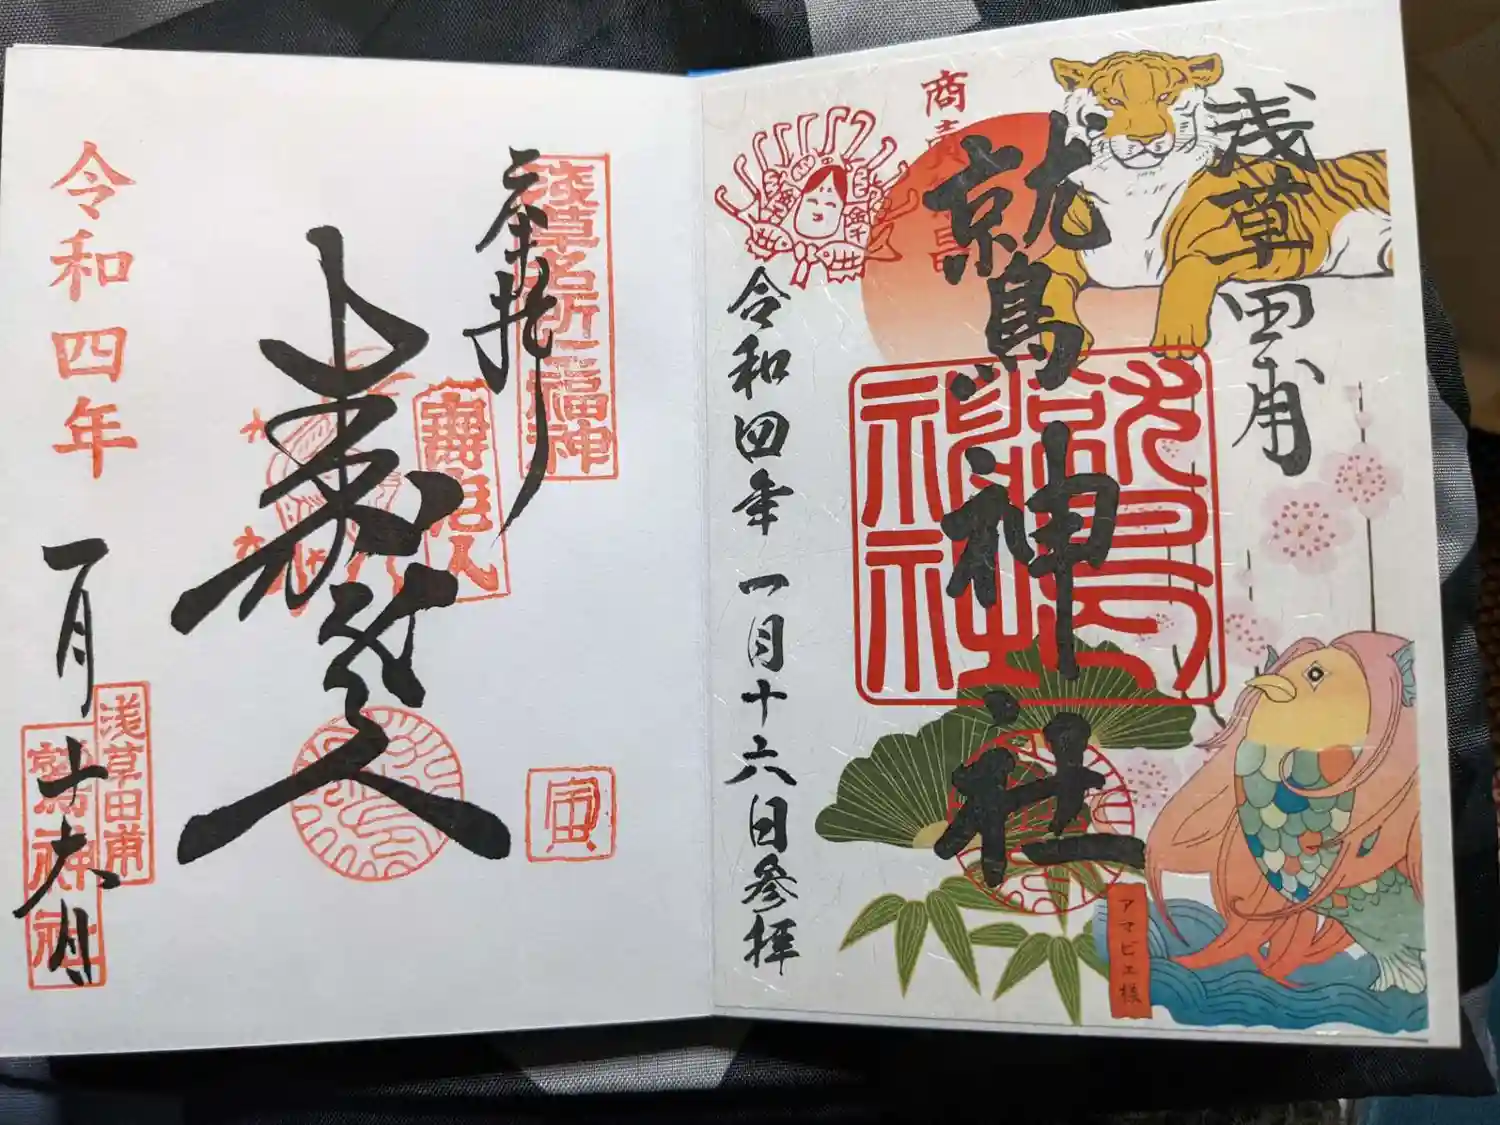 浅草田甫
鷲神社
商売繁昌
令和四年 一月十六日参拝
アマビエ様
奉拝
浅草名所七福神
寿老人
寿老人
寅
令和四年
一月十六日
浅草田甫
鷲神社